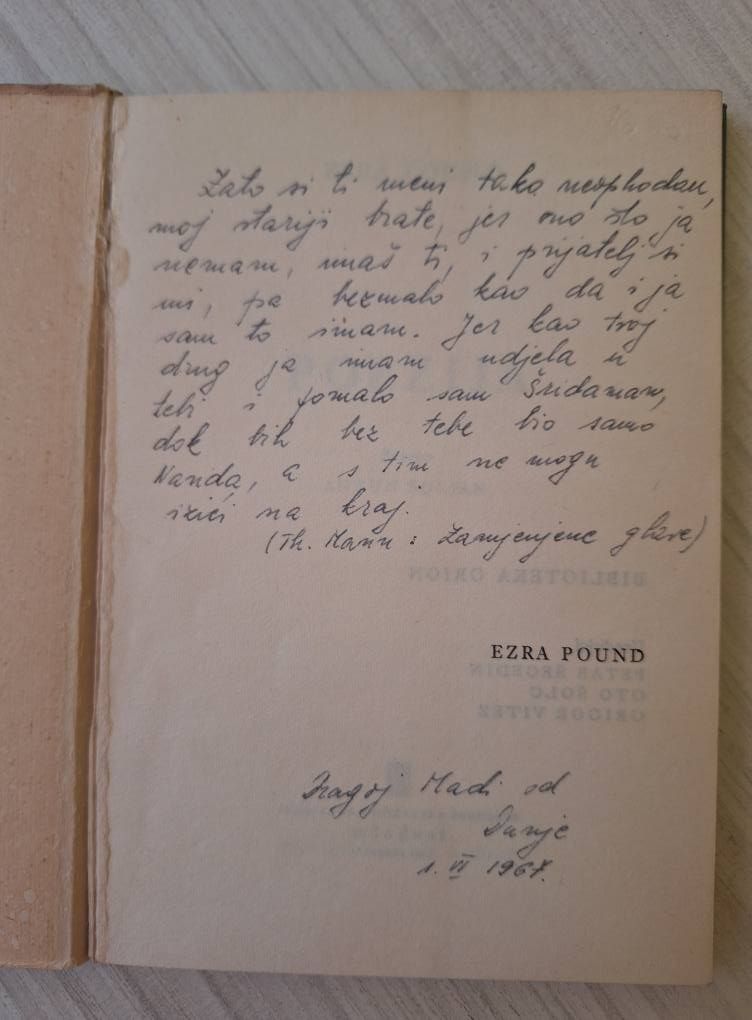 Zato si ti meni tako neophodan,
moj stariji brate, jer ono što ja
nemam, imaš ti, i prijatelj si
mi, pa bezmalo kao da i ja
sam to imam. Jer kao tvoj
drug ja imam udjela u
tebi i pomalo sam Šridaman,
dok bih bez tebe bio samo
Nanda, a s tim ne mogu
izići na kraj.
(Th. Mann: Zamjenjene glave)
BIBLIOTEKA ORION
EZRA POUND
PETAR ŠEGEDIN
OTO ŠOLC
GRIGOR VITEZ
Dragoj Madi od
Dunje
1. VI 1967.